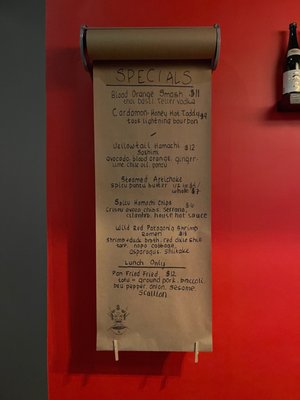 SPECIALS
Blood Orange Smash $11
thai basil, Teller vodka
Cardamom-Honey Hot Toddy $9
toss lightning bourbon
Yellowtail Hamachi $12
Sashimi
avocado, blood orange, ginger
lime, chile oil,
Steamed Artichoke
spicy ponzu butter 1/2
whole
Spicy Hamachi Chips
serrano,
cilantro, house hot sauce
Wild Red Patagonia Shrimp
Ramen
shrimp + duck broth, red
napa cabbage,
asparagus, shiitake
Lunch Only
Pan Fried Fried $12
tofu or ground pork, broccoli
bell pepper, onion, sesame,
scallion